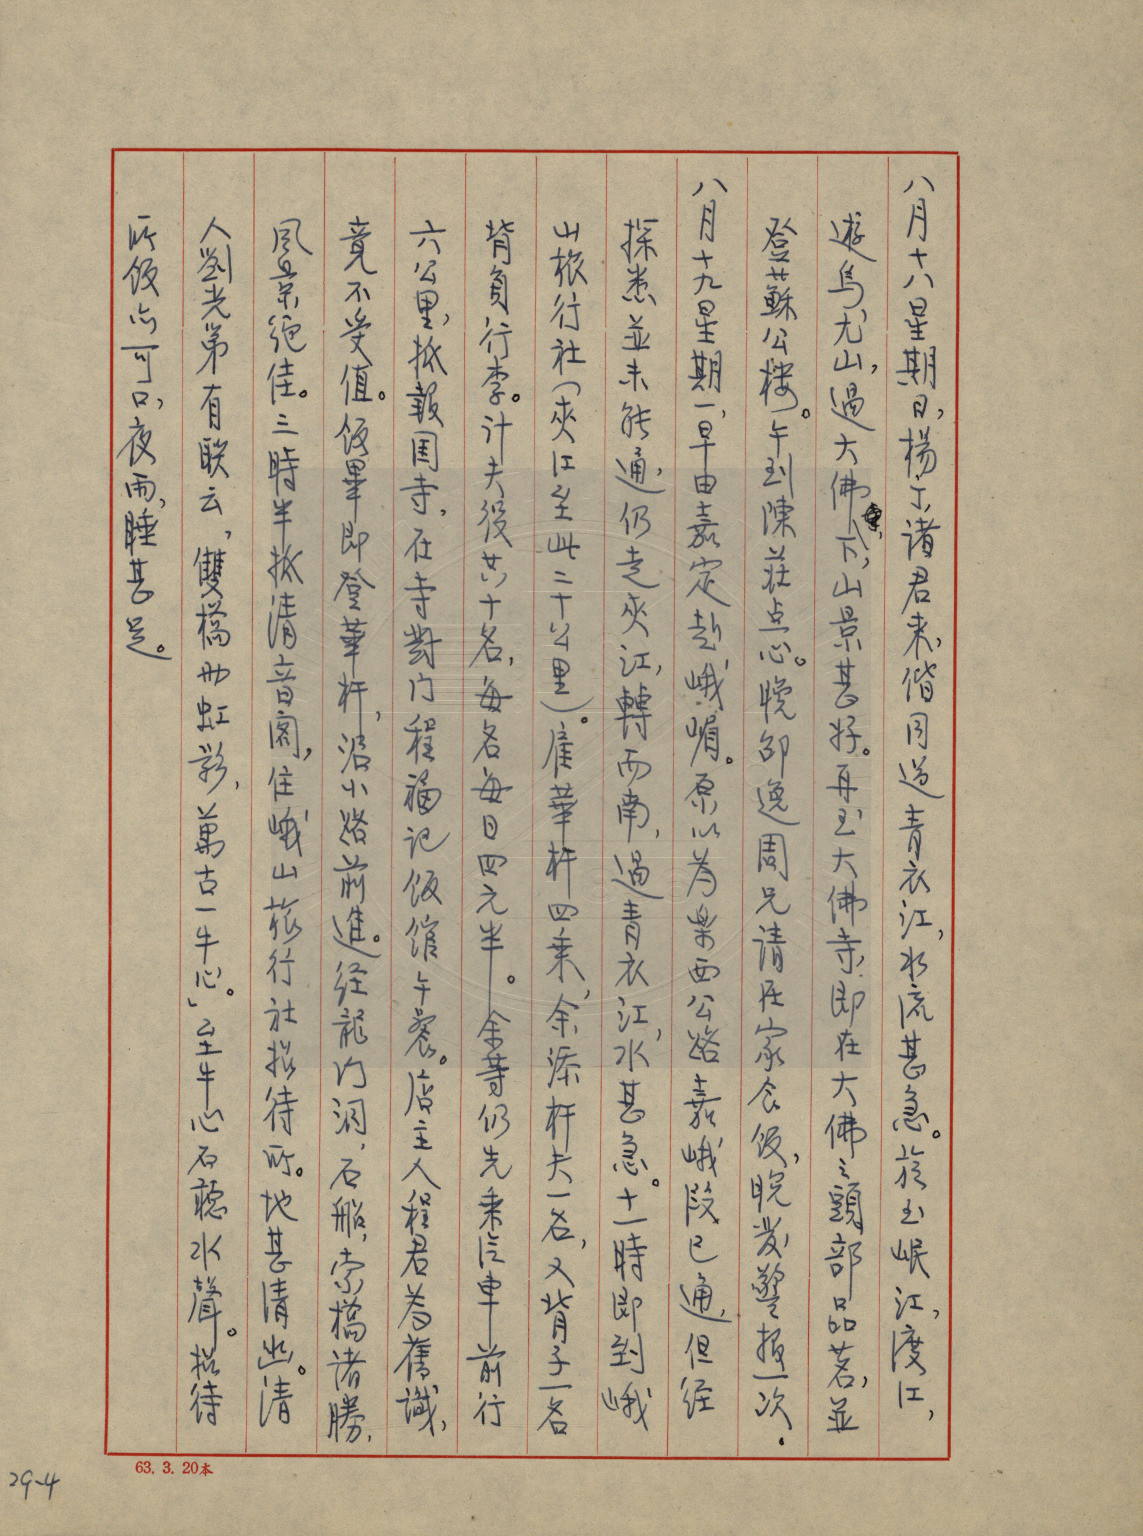 八月十八星期日，楊丁諸君来，偕同過青衣江，水流甚急。於玉岷江，渡江，
遊烏尤山，過大佛下，山景甚好。再至大佛寺，即在大佛之頭部品茗，並
登蘇公楼。午到陳莊点心。晚邵逸周兄请在家食饭，晚发警报一次。
八月十九星期一，早由嘉定赴峨嵋。原以为樂西公路嘉峨段已通，但经
探悉並未能通，仍走夾江，轉西南，過青衣江，水甚急。十一時即到峨
山旅行社（夾江至此二十公里）。雇華杆四乘，余添杆夫一名，又背子一名
背負行李。计夫役共十名，每名每日四元半。余等仍先乘汽車前行
六公里，抵報国寺，在寺對门程福记饭館午餐。店主人程君为舊識，
竟不受值。饭畢即登華杆，沿小路前進。经龍门洞，石船，索橋诸勝，
風景绝佳。三時半抵清音阁，住峨山旅行社招待所。地甚清幽。清
人劉光第有联云，雙橋两虹影，萬古一牛心。」至牛心石聽水聲。招待
所饭亦可口，夜雨，睡甚足。
63. 3. 20本
29-4